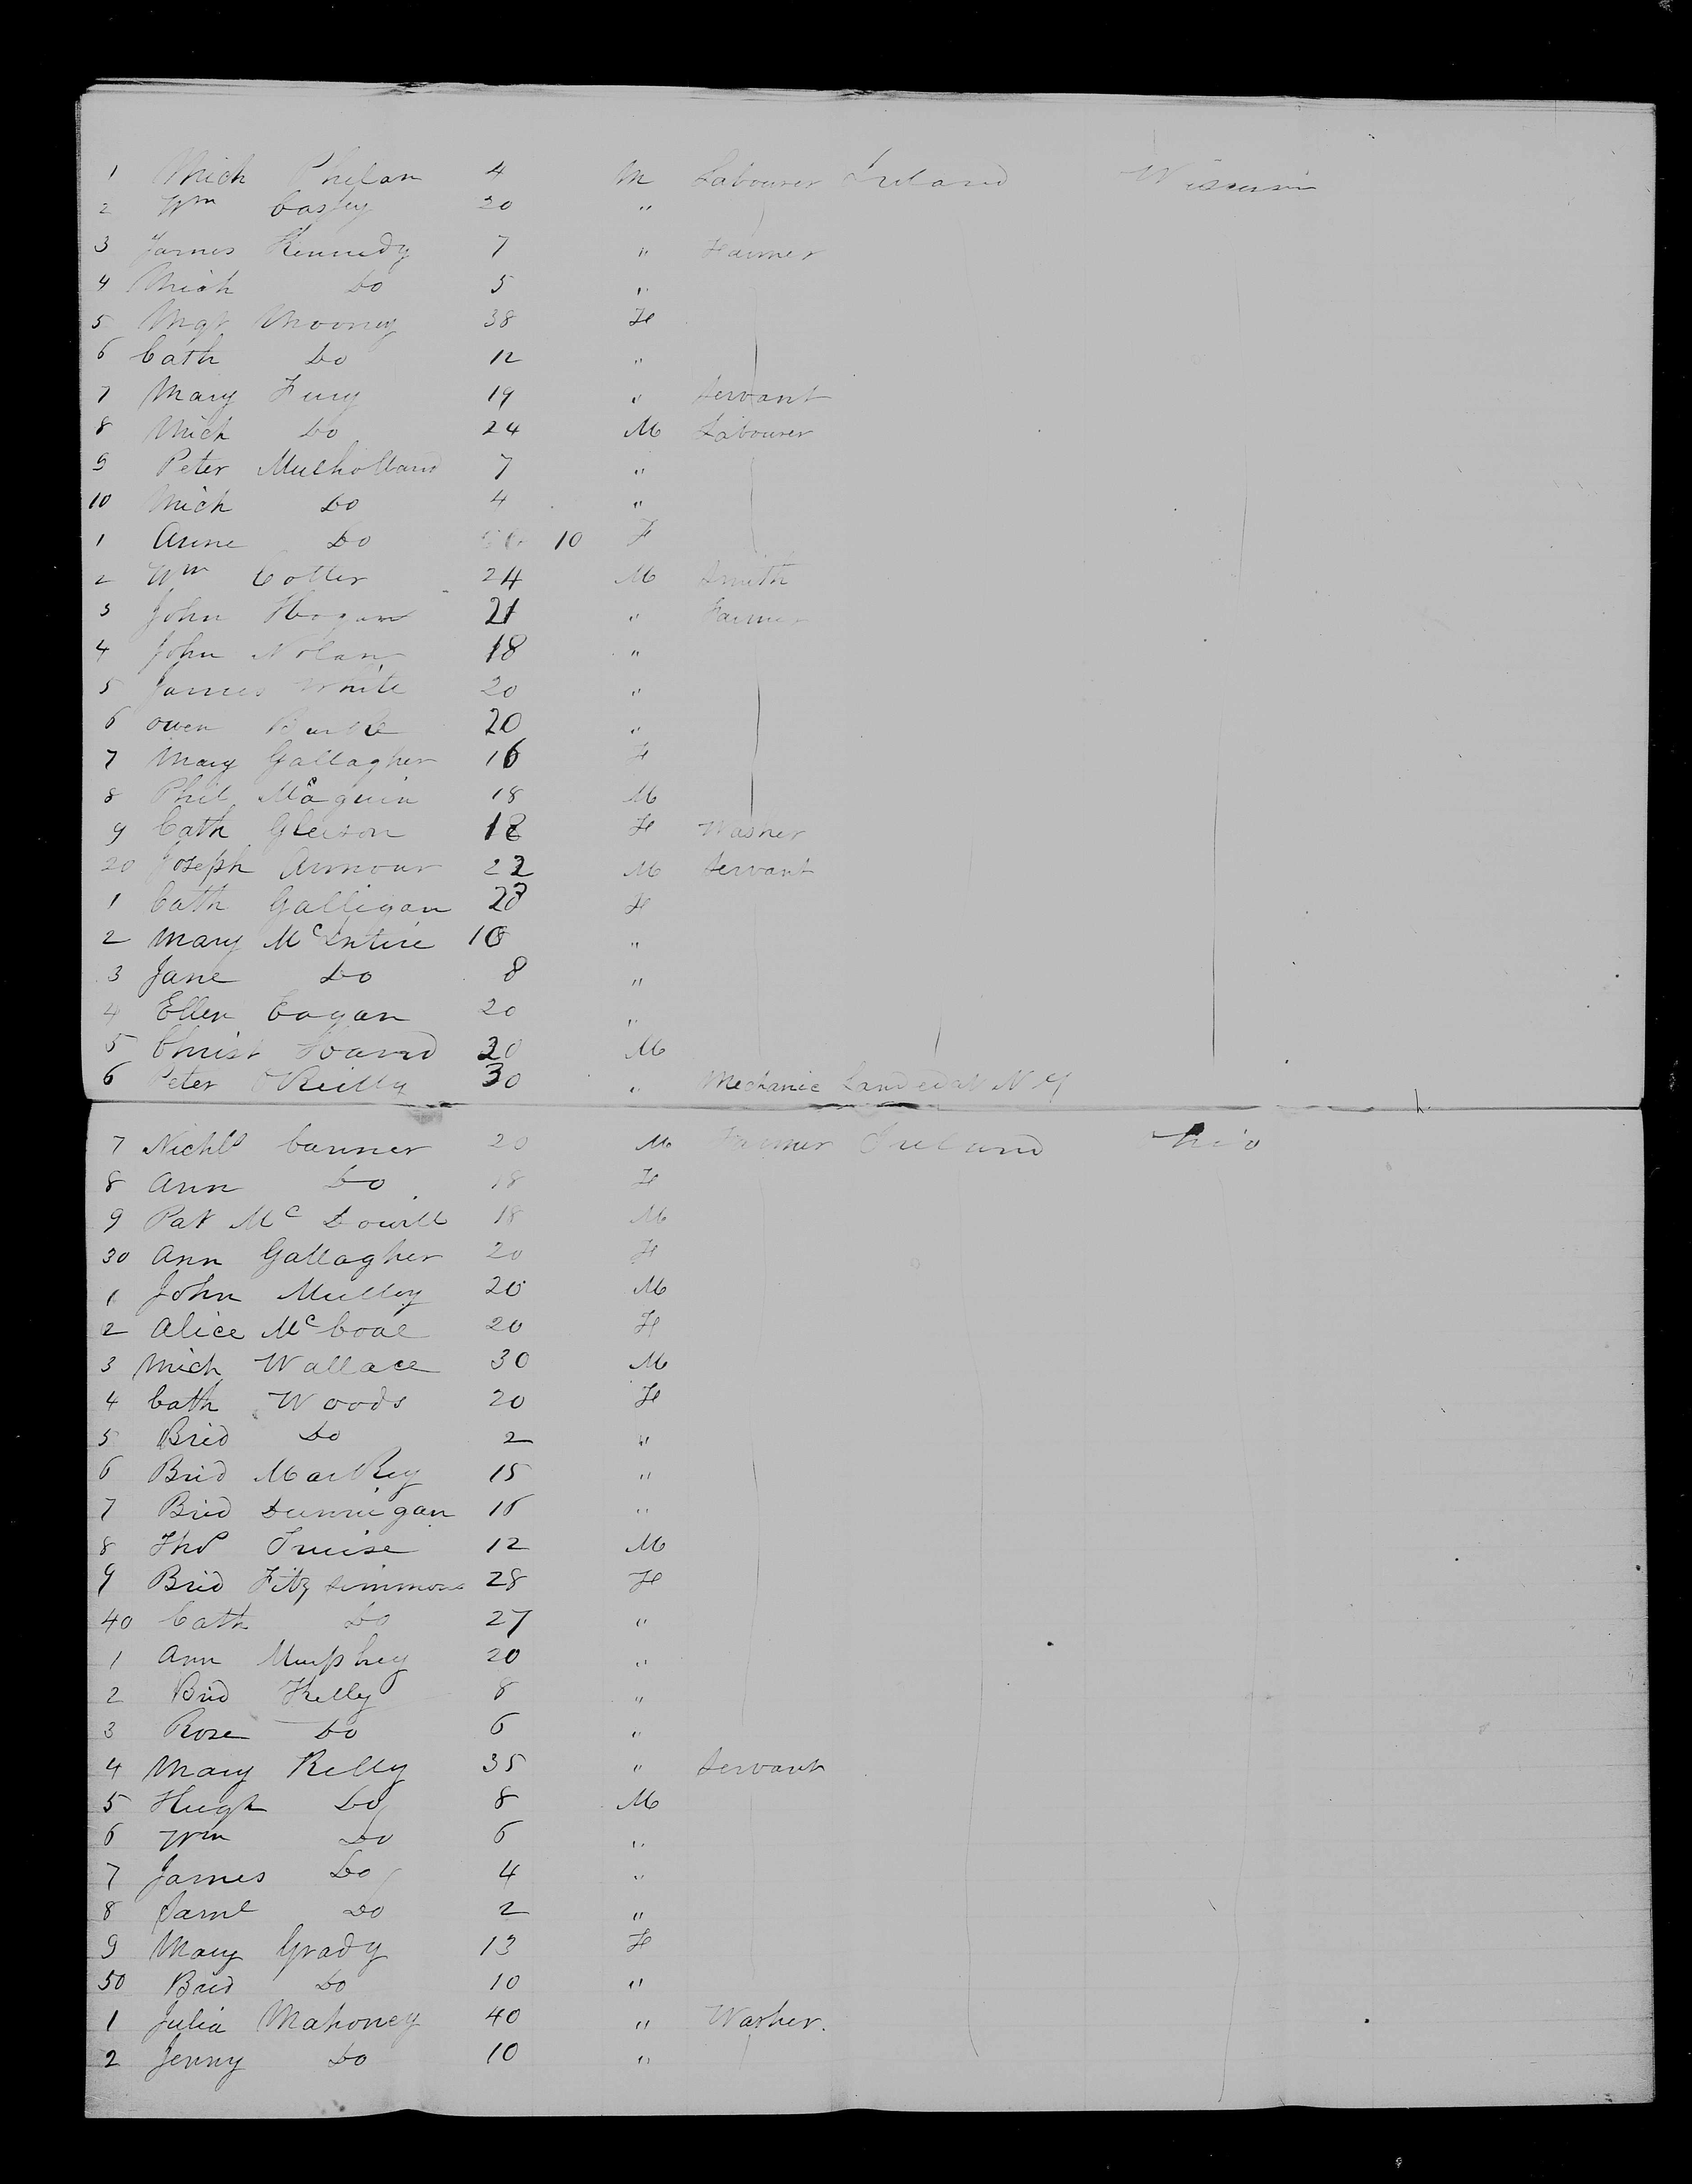 1 Mich Phelan 4 M Labourer Ireland Wisconsin
2 Wm Casey 20 "
3 James Kennedy 7 " Farmer
4 Mich Do 5 "
5 Mgt Mooney 38 F
6 Cath Do 12 "
7 Mary Fury 19 " Servant
8 Mich Do 24 M Labourer
9 Peter Mulholland 7 "
10 Mich Do 4 "
1 Anne Do 10 F
2 Wm Cotter 24 M Smith
3 John Hogan 21 " Farmer
4 John Nolan 18 "
5 James White 20 "
6 Owen Burke 20 "
7 Mary Gallagher 16 F
8 Phil Maguin 18 M
9 Cath Gleison 18 F Washer
20 Joseph Armour 22 M Servant
1 Cath Galligan 28 F
2 Mary McIntire 10 "
3 Jane Do 8 "
4 Ellen Eagan 20 "
5 Christ 20 M
6 Peter O'Reilly 30 " Mechanic Landed at N Y
7 Nichls Conner 20 M Farmer Ireland Ohio
8 Ann Do 18 F
9 Pat McDowell 18 M
30 Ann Gallagher 20 F
1 John Mulloy 20 M
2 Alice McCoal 20 F
3 Mich Wallace 30 M
4 Cath Woods 20 F
5 Brid Do 2 "
6 Brid Markey 15 "
7 Brid Dunnigan 16 "
8 Thos 12 M
9 Brid Fitzsimmons 28 F
40 Cath Do 27 "
1 Ann Murphey 20 "
2 Brid Kelly 8 "
3 Rose Do 6 "
4 Mary Kelly 35 " Servant
5 Hugh Do 8 M
6 Wm Do 6 "
7 James Do 4 "
8 Saml Do 2 "
9 Mary Grady 13 F
50 Brid Do 10 "
1 Julia Mahoney 40 " Washer.
2 Jenny Do 10 "